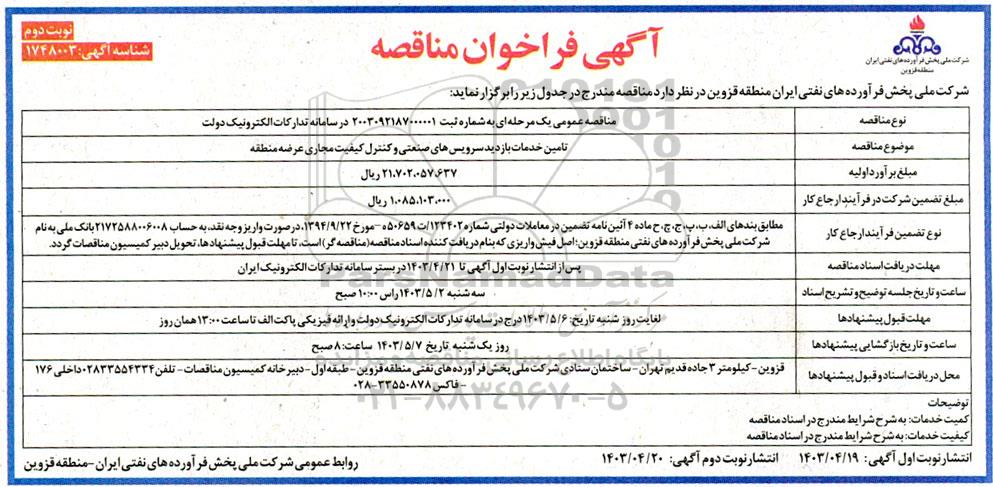 نوبت دوم
شناسه آگهی: ۱۷۴۸۰۰۳
آگهی فراخوان مناقصه
شرکت ملی پخش فرآورده های نفتی ایران
منطقه قزوین
شرکت ملی پخش فرآورده های نفتی ایران منطقه قزوین در نظر دارد مناقصه مندرج در جدول زیر را برگزار نماید:
نوع مناقصه
مناقصه عمومی یک مرحله ای به شماره ثبت ۲۰۰۳۰۹۲۱۸۷۰۰۰۰۰۱ در سامانه تدارکات الکترونیک دولت
موضوع مناقصه
تامین خدمات بازدید سرویس های صنعتی و کنترل کیفیت مجاری عرضه منطقه
مبلغ برآورد اولیه
۲۱.۷۰۲.۰۵۷.۶۳۷ ریال
مبلغ تضمین شرکت در فرآیند ارجاع کار
۱.۰۸۵.۱۰۳.۰۰۰ ریال
نوع تضمین فرآیند ارجاع کار
مطابق بندهای الف، ب، پ، ج، چ، ح ماده ۴ آئین نامه تضمین در معاملات دولتی شماره ۱۲۳۴۰۲/ت۵۰۶۵۹ه- مورخ ۱۳۹۴/۹/۲۲، در صورت واریز وجه نقد، به حساب ۲۱۷۲۵۸۸۰۰۶۰۰۸ بانک ملی به نام
شرکت ملی پخش فرآورده های نفتی منطقه قزوین؛ اصل فیش واریزی که بنام دریافت کننده اسناد مناقصه (مناقصه گر) است، تا مهلت قبول پیشنهادها، تحویل دبیر کمیسیون مناقصات گردد.
مهلت دریافت اسناد مناقصه
پس از انتشار نوبت اول آگهی تا ۱۴۰۳/۴/۲۱ در بستر سامانه تدارکات الکترونیک ایران
ساعت و تاریخ جلسه توضیح و تشریح اسناد
سه شنبه ۱۴۰۳/۵/۲ راس ۱۰:۰۰ صبح
مهلت قبول پیشنهادها
لغایت روز شنبه تاریخ: ۱۴۰۳/۵/۶ درج در سامانه تدارکات الکترونیک دولت و ارائه فیزیکی پاکت الف تا ساعت ۱۳:۰۰ همان روز
ساعت و تاریخ بازگشایی پیشنهادها
روز یک شنبه تاریخ ۱۴۰۳/۵/۷ ساعت: ۸ صبح
محل دریافت اسناد و قبول پیشنهادها
قزوین - کیلومتر ۳ جاده قدیم تهران - ساختمان ستادی شرکت ملی پخش فرآورده های نفتی منطقه قزوین - طبقه اول - دبیرخانه کمیسیون مناقصات - تلفن ۰۲۸۳۳۵۵۴۳۳۴ داخلی ۱۷۶
- فاکس ۳۳۵۵۰۸۷۸-۰۲۸
توضیحات
کمیت خدمات: به شرح شرایط مندرج در اسناد مناقصه
کیفیت خدمات: به شرح شرایط مندرج در اسناد مناقصه
انتشار نوبت اول آگهی: ۱۴۰۳/۰۴/۱۹ انتشار نوبت دوم آگهی: ۱۴۰۳/۰۴/۲۰
روابط عمومی شرکت ملی پخش فرآورده های نفتی ایران - منطقه قزوین
ParsNamadData
پایگاه اطلاع رسانی مناقصه و مزایده
۰۲۱-۸۸۳۴۹۶۷۰-۵